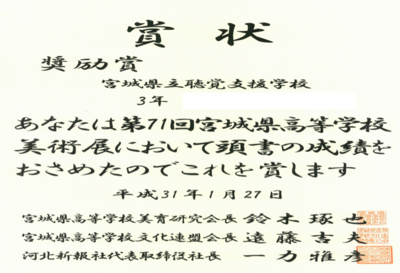 賞状
奨励賞
宮城県立聴覚支援学校
3年
あなたは第71回宮城県高等学校
美術展において頭書の成績を
おさめたのでこれを賞します
平成31年1月27日
宮城県高等学校美育研究会長 鈴木琢也
宮城県高等学校文化連盟会長 遠藤吉夫
河北新報社代表取締役社長 一力雅彦